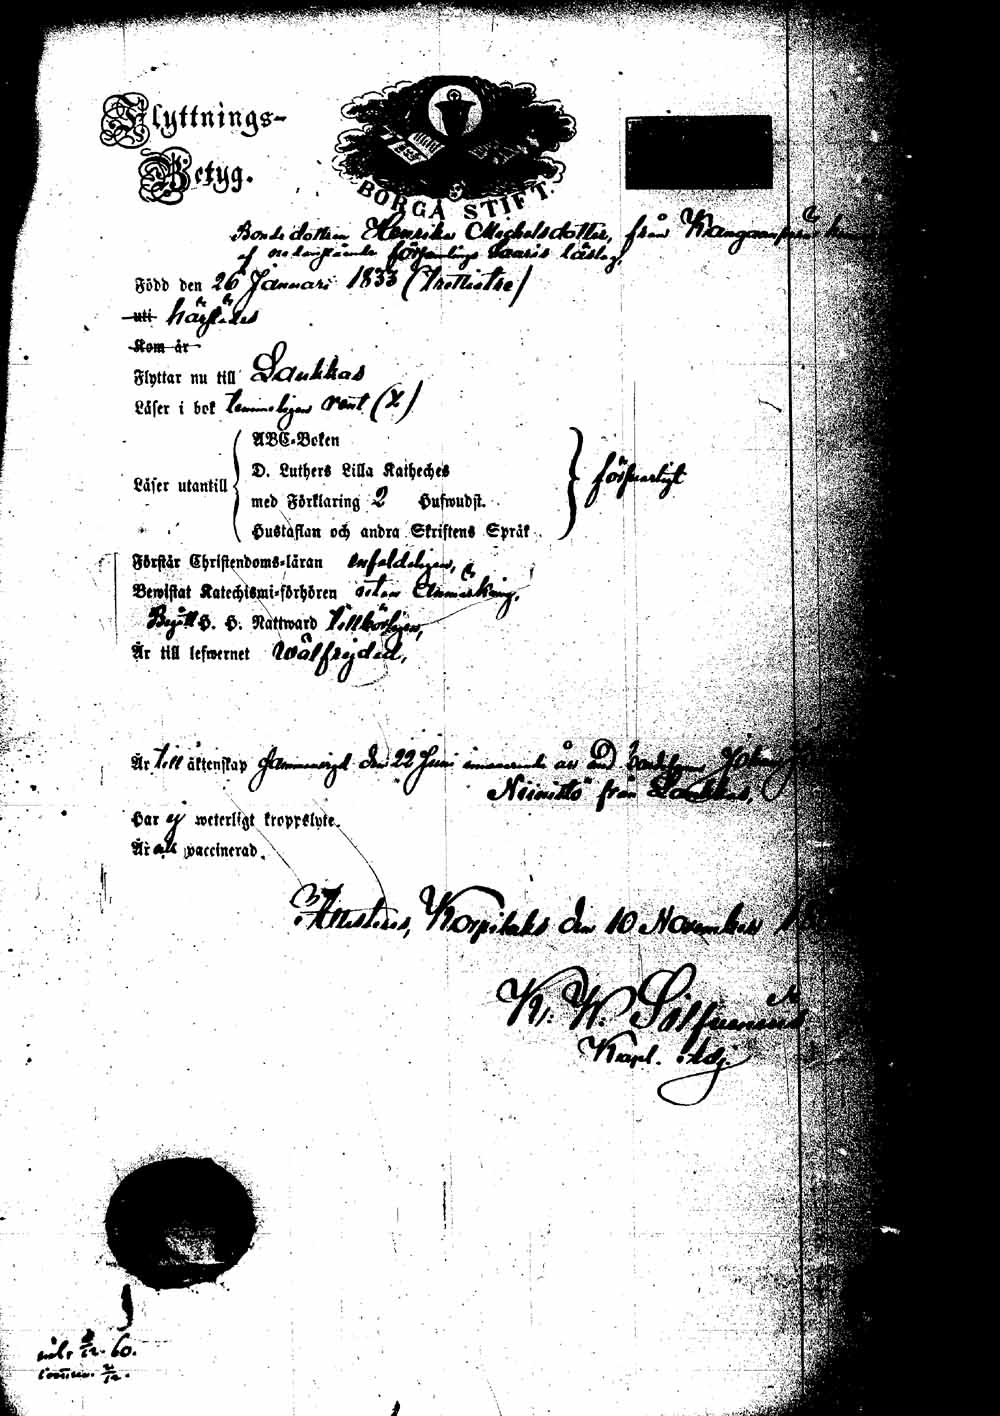 Flyttnings-
Betyg.
BORGÅ STIFT.
Bondedottren Henrika Michelsdotter, från
af församlings Saaris läslag,
Född den 26 Januari 1833 (Trettiotre)
uti härstädes
Kom år
Flyttar nu till Laukkas
Läser i bok temmeligen rent (2)
Läser utantill
ABC-Boken
D. Luthers Lilla Katheches
med Förklaring 2 Hufwudst.
Hustaflan och andra Skriftens Språk
försvarligt
Förstår Christendoms-läran enfaldeligen,
Bewistat Katechismi-förhören utan Anmärkning,
Begått H. H. Nattward tillbörligen,
Är till lefwernet wälfrejdad,
Är till äktenskap sammanvigd den 22 Juni innevarande år
från Laukkas,
Har ej weterligt kroppslyte.
Är vaccinerad.
Attesteras, Korpilaks den 10 November
K. W.
Kapl. Adj.
60.